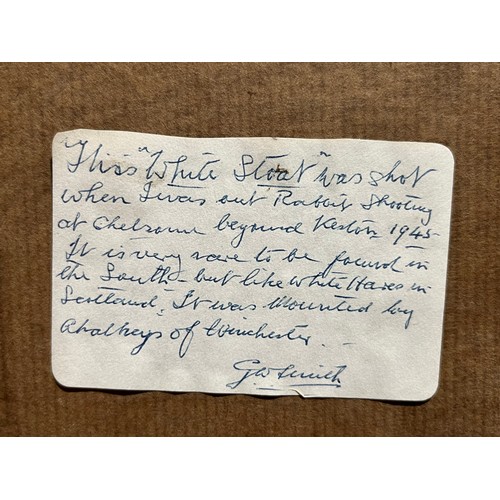 This "White Stoat" was shot
when I was out Rabbit Shooting
at Chelsome beyond Keston 1945
It is very rare to be found in
the South but like White Hares in
Scotland. It was Mounted by
Chalkeys of Winchester.
GW Smith